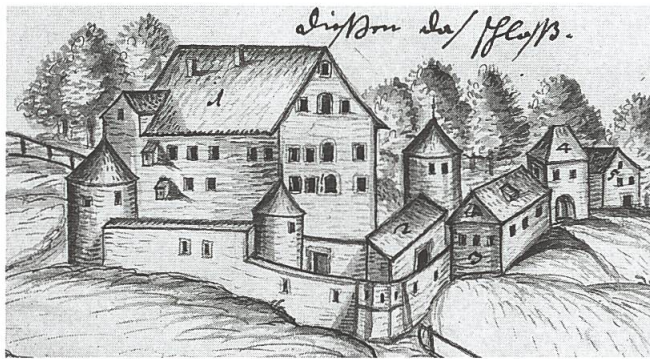 dießen das schloß.
1
4
5
2
3